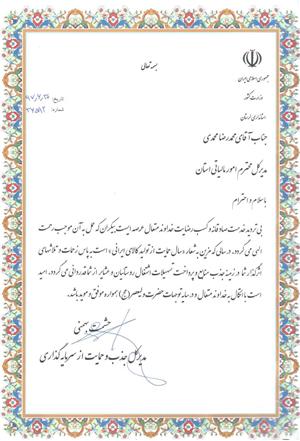 بسمه تعالی
جمهوری اسلامی ایران
وزارت کشور
استانداری لرستان
تاریخ: ۹۷,۷,۲۶
شماره: ۳۷۵۹۲
جناب آقای محمدرضا محمدی
مدیرکل محترم امور مالیاتی استان
با سلام و احترام
بی تردید خدمت صادقانه و کسب رضایت خداوند متعال عرصه ایست بیکران که عمل به آن موجب رحمت
الهی می گردد. در سالی که مزین به شعار «سال حمایت از تولید کالای ایرانی» است به پاس زحمات و تلاشهای
اثرگذار شما در زمینه جذب منابع و پرداخت تسهیلات اشتغال روستائیان و عشایر از شما قدردانی می گردد. امید
است با اتکال به خداوند متعال و در سایه توجهات حضرت ولیعصر (عج) همواره موفق و موید باشید.
حشمت بهمنی
مدیرکل جذب و حمایت از سرمایه گذاری